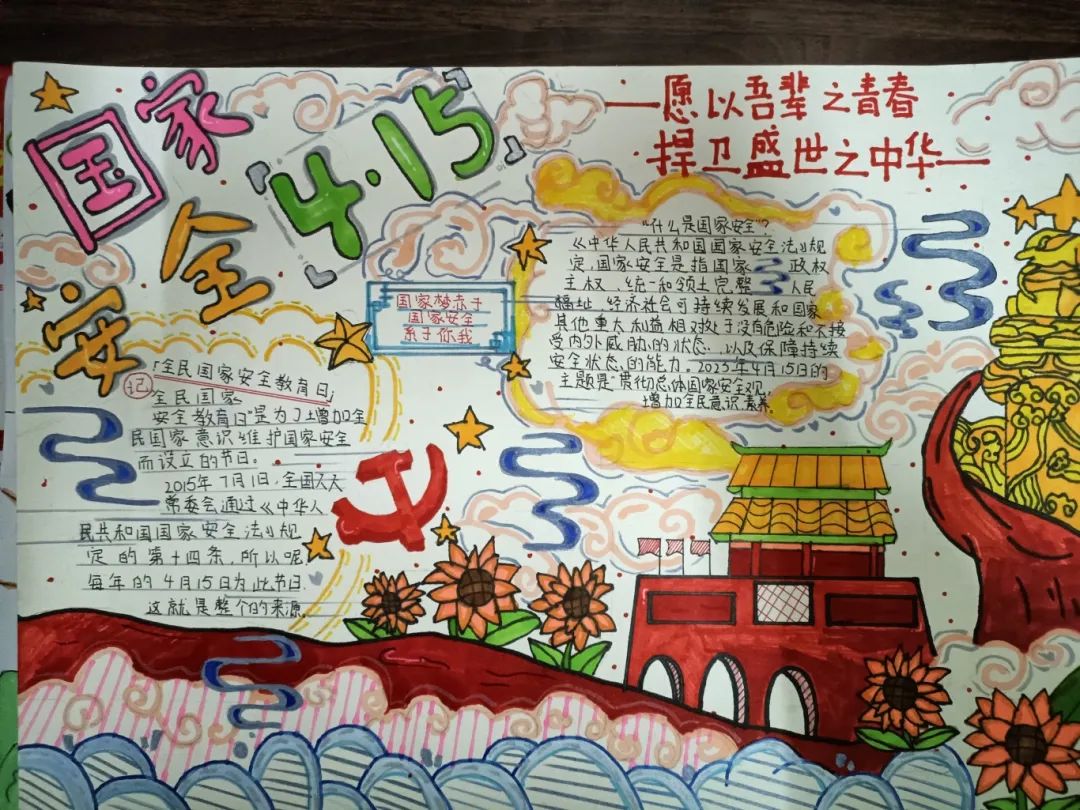 国家
安全
4·15
愿以吾辈之青春
捍卫盛世之中华
国家梦
国家安全
系于你我
"什么是国家安全"?
《中华人民共和国国家安全法》规
定,国家安全是指国家 政权
主权、统一和领土完整 人民
福祉、经济社会可持续发展和国家
其他重大利益相对处于没有危险和不接
受内外威胁的状态,以及保障持续
安全状态的能力。2023年4月15日的
主题是"贯彻总体国家安全观,
增加全民意识,素养。
「全民国家安全教育日」
记 全民国家
安全教育日"是为了增加全
民国家意识维护国家安全
而设立的节日。
2015年7月1日,全国人大
常委会通过《中华人
民共和国国家安全法》规
定的第十四条,所以呢,
每年的4月15日为此节日.
这就是整个的来源。